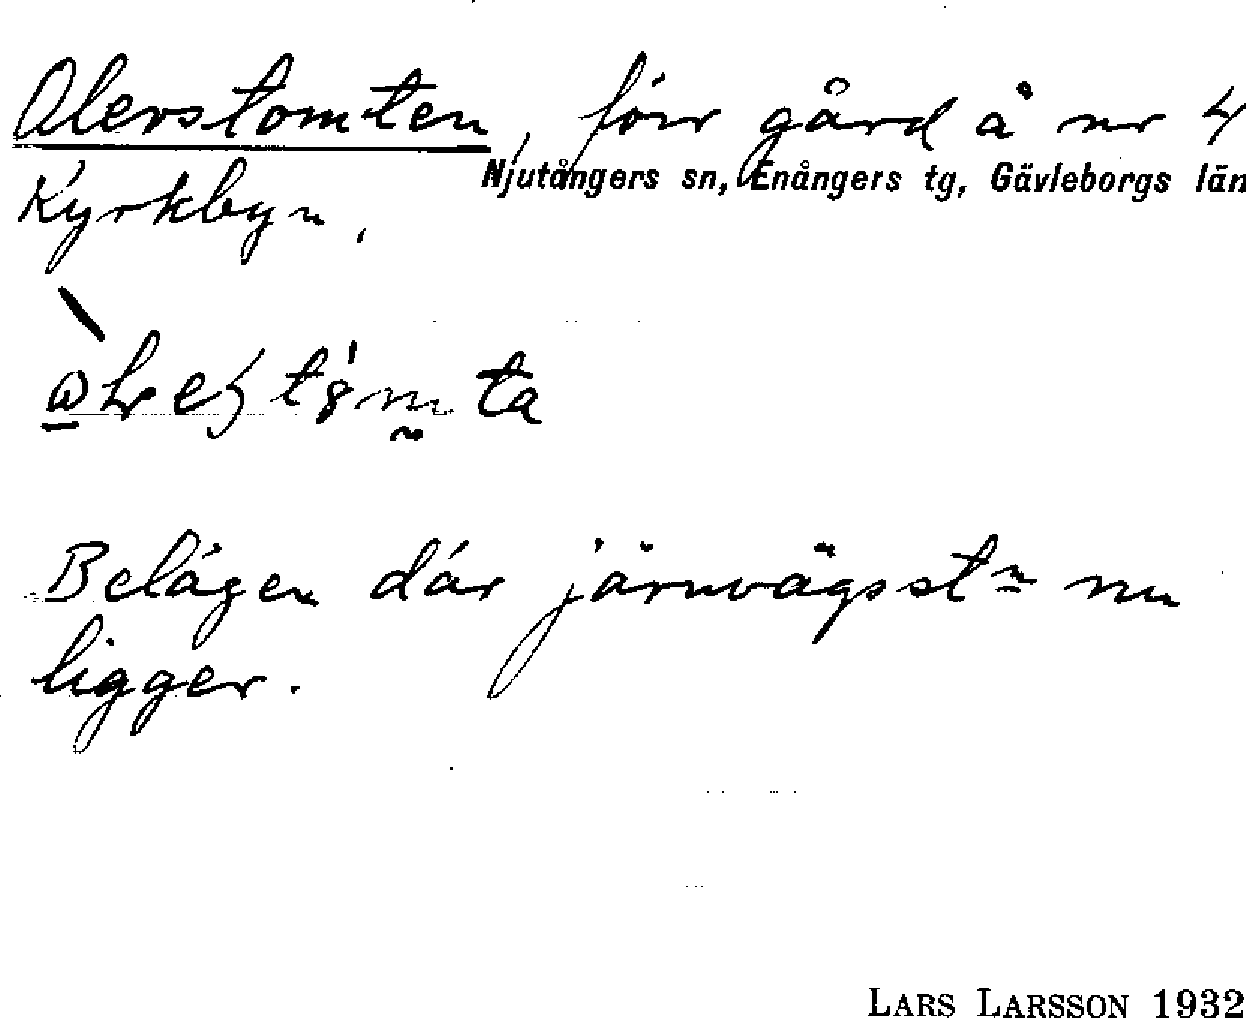 Olevstomten, förr gård å nr 4
Njutångers sn, Enångers tg, Gävleborgs län
Kyrkbyn,
Belägen där järnvägsstn nu
ligger.
LARS LARSSON 1932